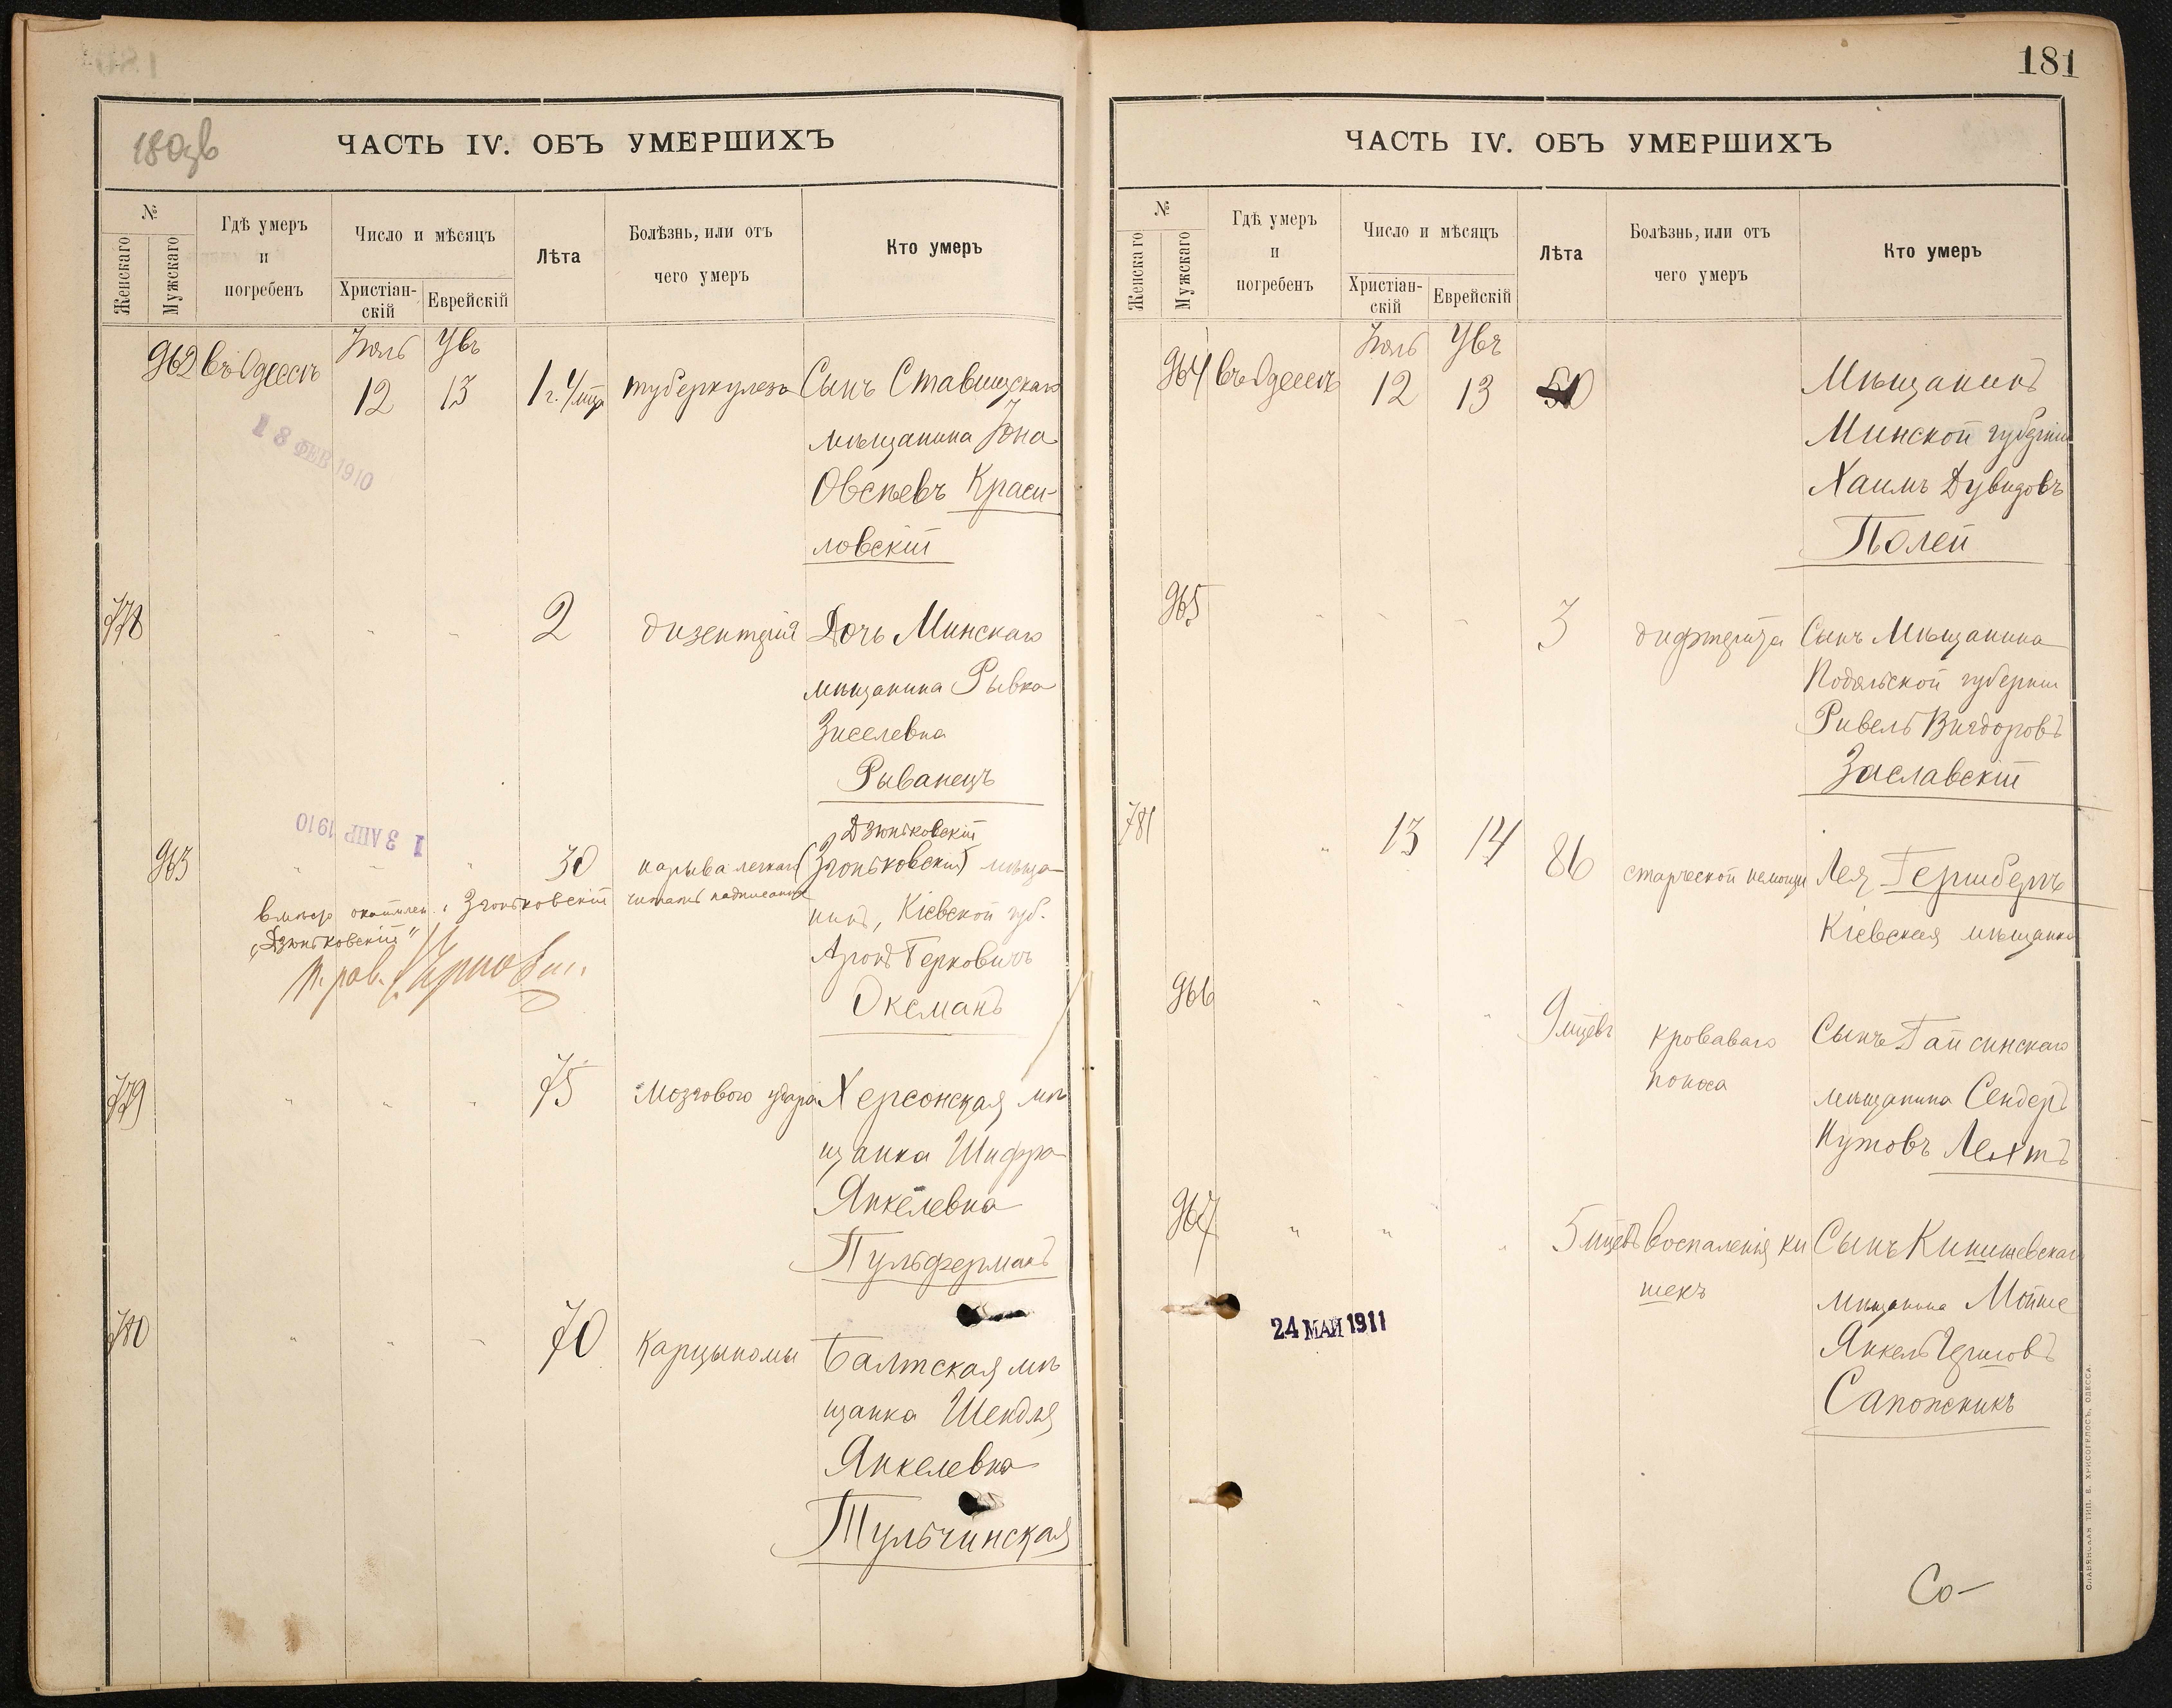 180об
ЧАСТЬ IV. ОБЪ УМЕРШИХЪ
№
Женскаго
Мужскаго
Гдѣ умеръ
и
погребенъ
Число и мѣсяцъ
Христіан-
скій
Еврейскій
Лѣта
Болѣзнь, или отъ
чего умеръ
Кто умеръ
962 въ Одессѣ
Іюль
12
13
1 г. 4 мца
туберкулеза
Сынъ Ставищскаго
мѣщанина Іона
Овсѣевъ Краси-
ловскій
18 ФЕВ 1910
778 " " " 2 дизентерія Дочь Минскаго
мѣщанина Рывка
Зиселевна
Рыванецъ
13 АПР 1910
Дзюньковскій
963 " " " 30 нарыва легкаго
мѣща-
нинъ, Кіевской губ.
Аронъ Герковичъ
Оксманъ
"Дзюньковскій"
779 " " " 75 мозгового удара Херсонская мѣ
щанка Шифра
Янкелевна
Пульферманъ
780 " " " 70 Карцыномы Балтская мѣ
щанка Шендля
Янкелевна
Тульчинская
181
ЧАСТЬ IV. ОБЪ УМЕРШИХЪ
№
Женскаго
Мужскаго
Гдѣ умеръ
и
погребенъ
Число и мѣсяцъ
Христіан-
скій
Еврейскій
Лѣта
Болѣзнь, или отъ
чего умеръ
Кто умеръ
964 въ Одессѣ
Іюль
12
13
Мѣщанинъ
Минской губерніи
Хаимъ Дувидовъ
Полей
965 " " " 3 дифтерита Сынъ Мѣщанина
Подольской губерніи
Заславскій
781 " 13 14 86 старческой немощи Лея Гершбергъ
Кіевская мѣщанка
966 " " " 9 мцевъ кроваваго
поноса
Сынъ Гайсинскаго
мѣщанина Сендеръ
Нутовъ Лехтъ
967 " " " 5 мцевъ воспаленія ки
шекъ
Сынъ Кишиневскаго
мѣщанина Мойше
Янкель
Сапожникъ
24 МАЙ 1911
Со-
СЛАВЯНСКАЯ ТИП. Е. ХРИСОГЕЛОСЪ, ОДЕССА.